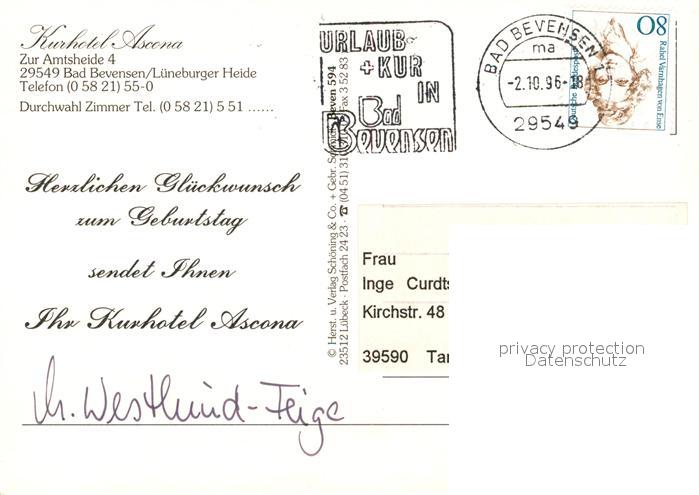 Kurhotel Ascona
Zur Amtsheide 4
29549 Bad Bevensen/Lüneburger Heide
Telefon (0 58 21) 55-0
Durchwahl Zimmer Tel. (0 58 21) 5 51 ......
Herzlichen Glückwunsch
zum Geburtstag
sendet Ihnen
Ihr Kurhotel Ascona
Westlund-Feige
© Herst. u. Verlag Schöning & Co. + Gebr. Schmidt Beven 594
23512 Lübeck · Postfach 24 23 · ☎ (04 51) 31 Fax 3 52 83
URLAUB
+ KUR
IN
Bad
Bevensen
BAD BEVENSEN 1
ma
-2.10.96-18
29549
80
Rahel Varnhagen von Ense
Deutsche Bundespost
Frau
Inge Curdts
Kirchstr. 48
39590 Tan
privacy protection
Datenschutz